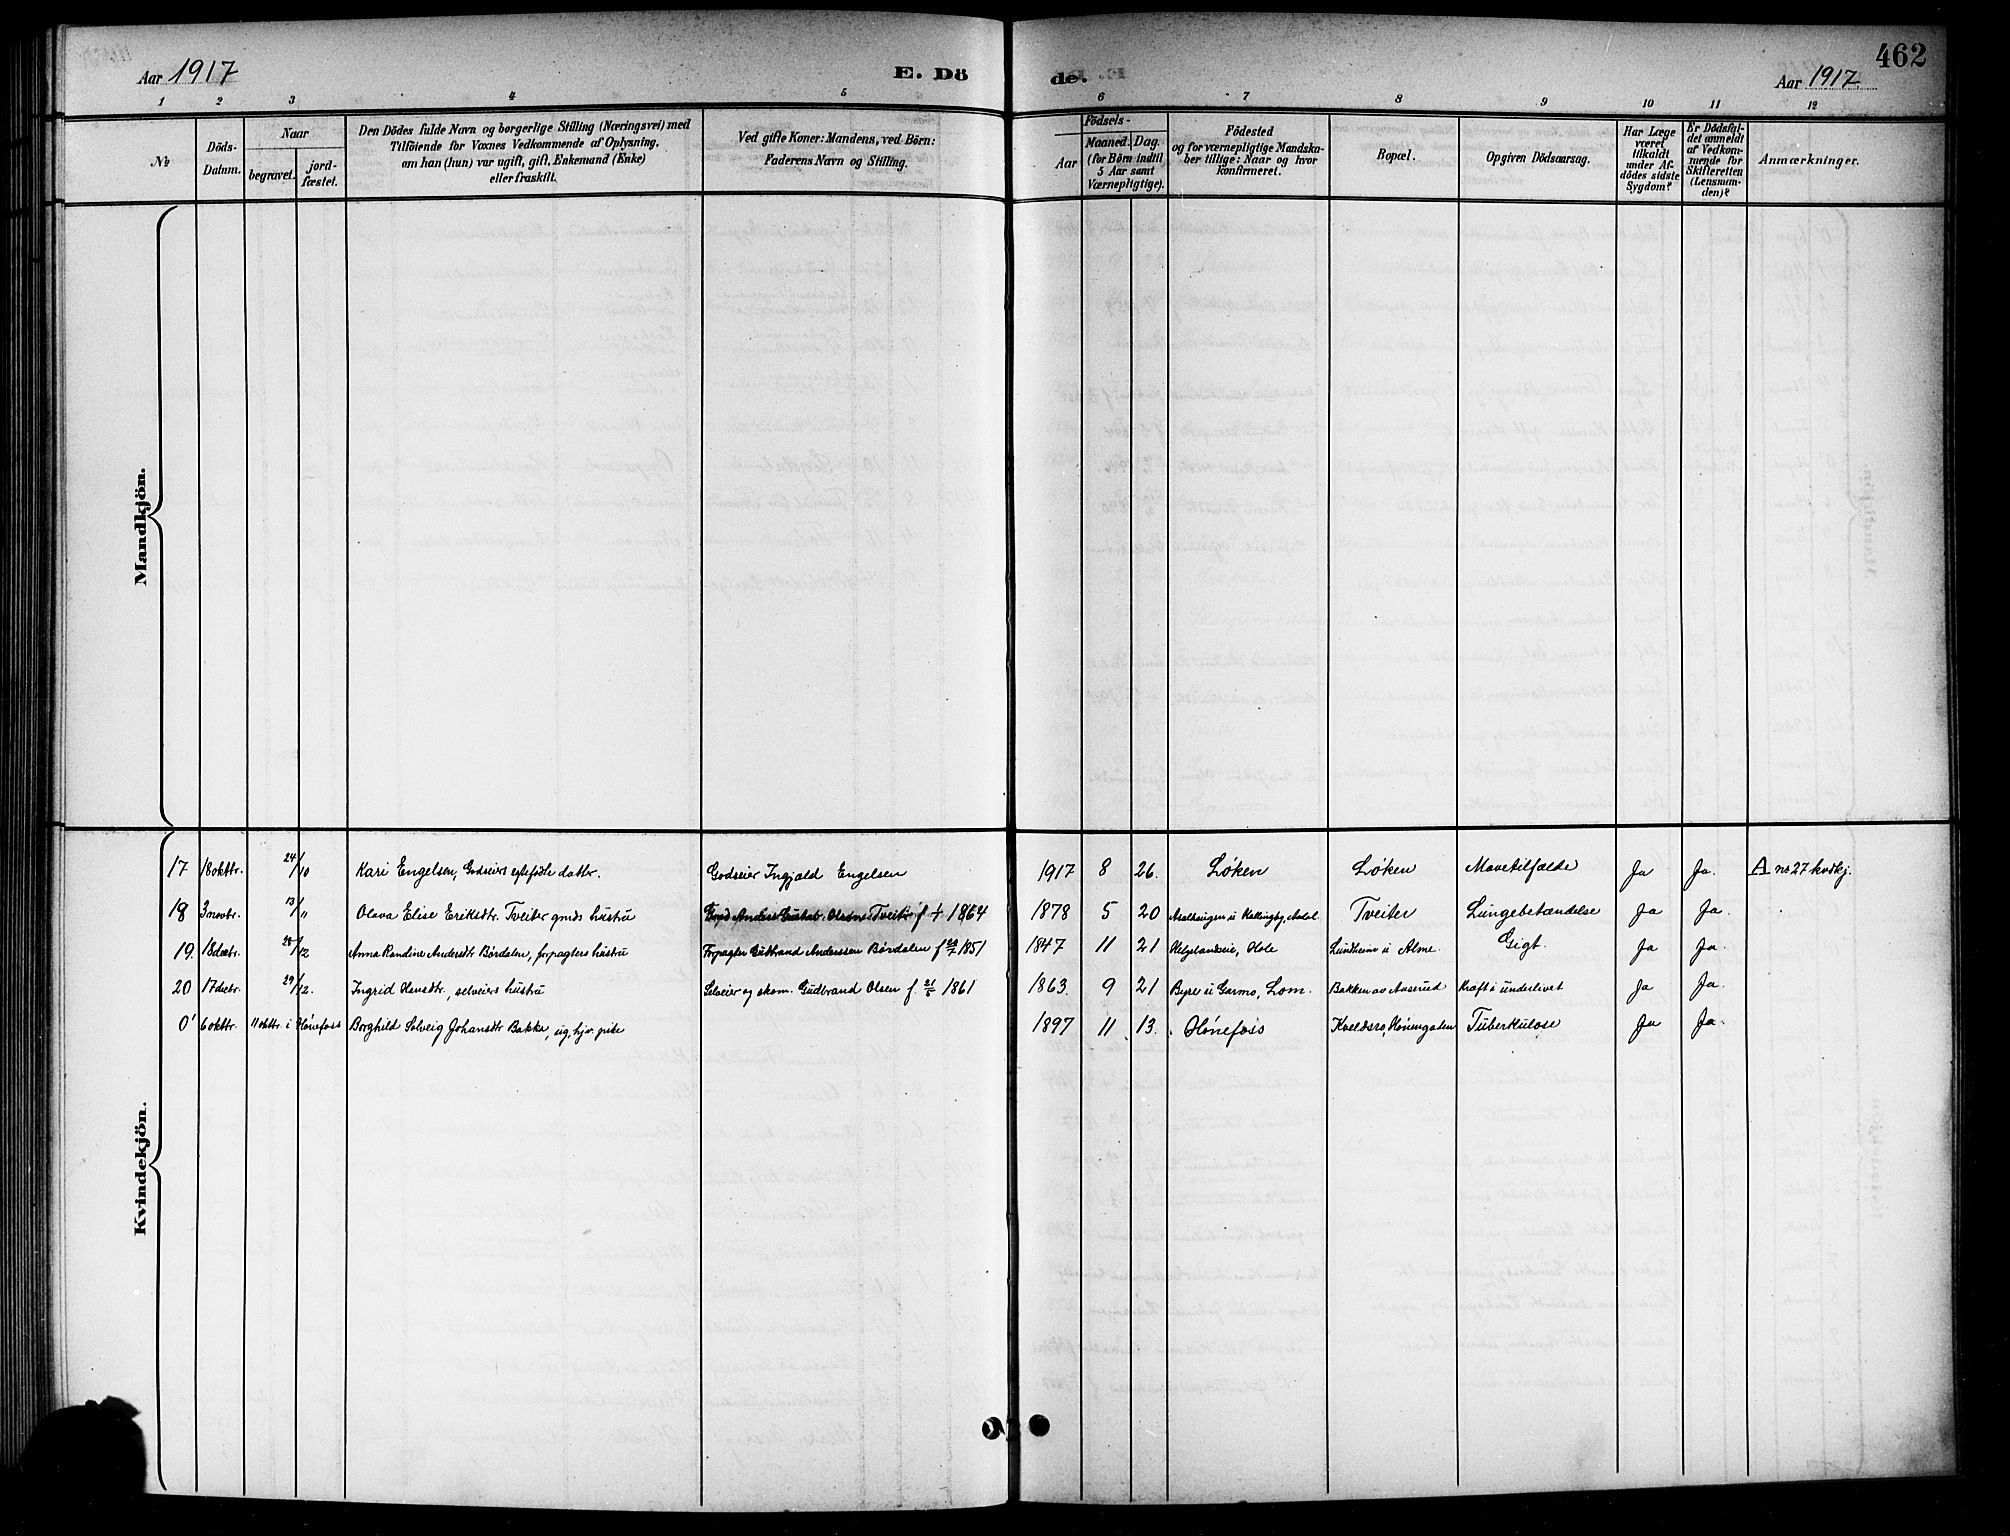 Aar 1917
E. Dö
de.
Aar 1917.
462
1 2 3 4 5 6 7 8 9 10 11 12
No
Döds-
Datum.
Naar
begravet.
jord-
fæstet.
Den Dödes fulde Navn og borgerlige Stilling (Næringsvei) med
Tilföiende for Voxnes Vedkommende af Oplysning,
om han (hun) var ugift, gift, Enkemand (Enke)
eller fraskilt.
Ved gifte Koner: Mandens, ved Börn:
Faderens Navn og Stilling.
Födsels-
Aar
Maaned. Dag.
(for Börn indtil
5 Aar samt
Værnepligtige).
Födested
og for værnepligtige Mandska-
ber tillige: Naar og hvor
konfirmeret.
Bopæl.
Opgiven Dödsaarsag.
Har Læge
været
tilkaldt
under Af-
dödes sidste
Sygdom?
Er Dödsfal-
det anmeldt
af Vedkom-
mende for
Skifteretten
(Lensman-
den)?
Anmærkninger.
Mandkjön.
Kvindekjön.
17 18 oktbr. 24/10 Kari Engelsen, Godseiers egtefødte datter. Godseier Ingjald Engelsen 1917 8 26. Løken Løken Mavetilfælde Ja Ja. A nr 27 kvdkj.
18 3 novbr. 13/11 Olava Elise Eriksdtr. Tveiter gmds hustru Gmd Anders Gustav Olsen Tveiter f 1864 1878 5 20 Tveiter Lungebetændelse Ja Ja.
19. 18 decbr. 28/12 Anna Randine Andersdtr Børdalen, forpagters hustru Forpagter Gulbrand Anderssen Børdalen f 1851 1847 11 21 Helgelandseie, Hole Lundheim u Alme. Gigt. Ja Ja.
20 17 decbr. 29/12. Ingrid Hansdtr., selveiers hustru Selveier og skom. Gudbrand Olsen f. 21/5 1861 1863. 9 21 Byre u Garmo, Lom. Bakken av Aaserud Kræft i underlivet Ja Ja.
0' 6 oktbr. 11 oktbr. i Hønefoss Borghild Solveig Johansdtr Bakke, ug, hjv. pike 1897 11 13. Hønefoss Kveldsro, Hønengaten Tuberkulose Ja Ja.